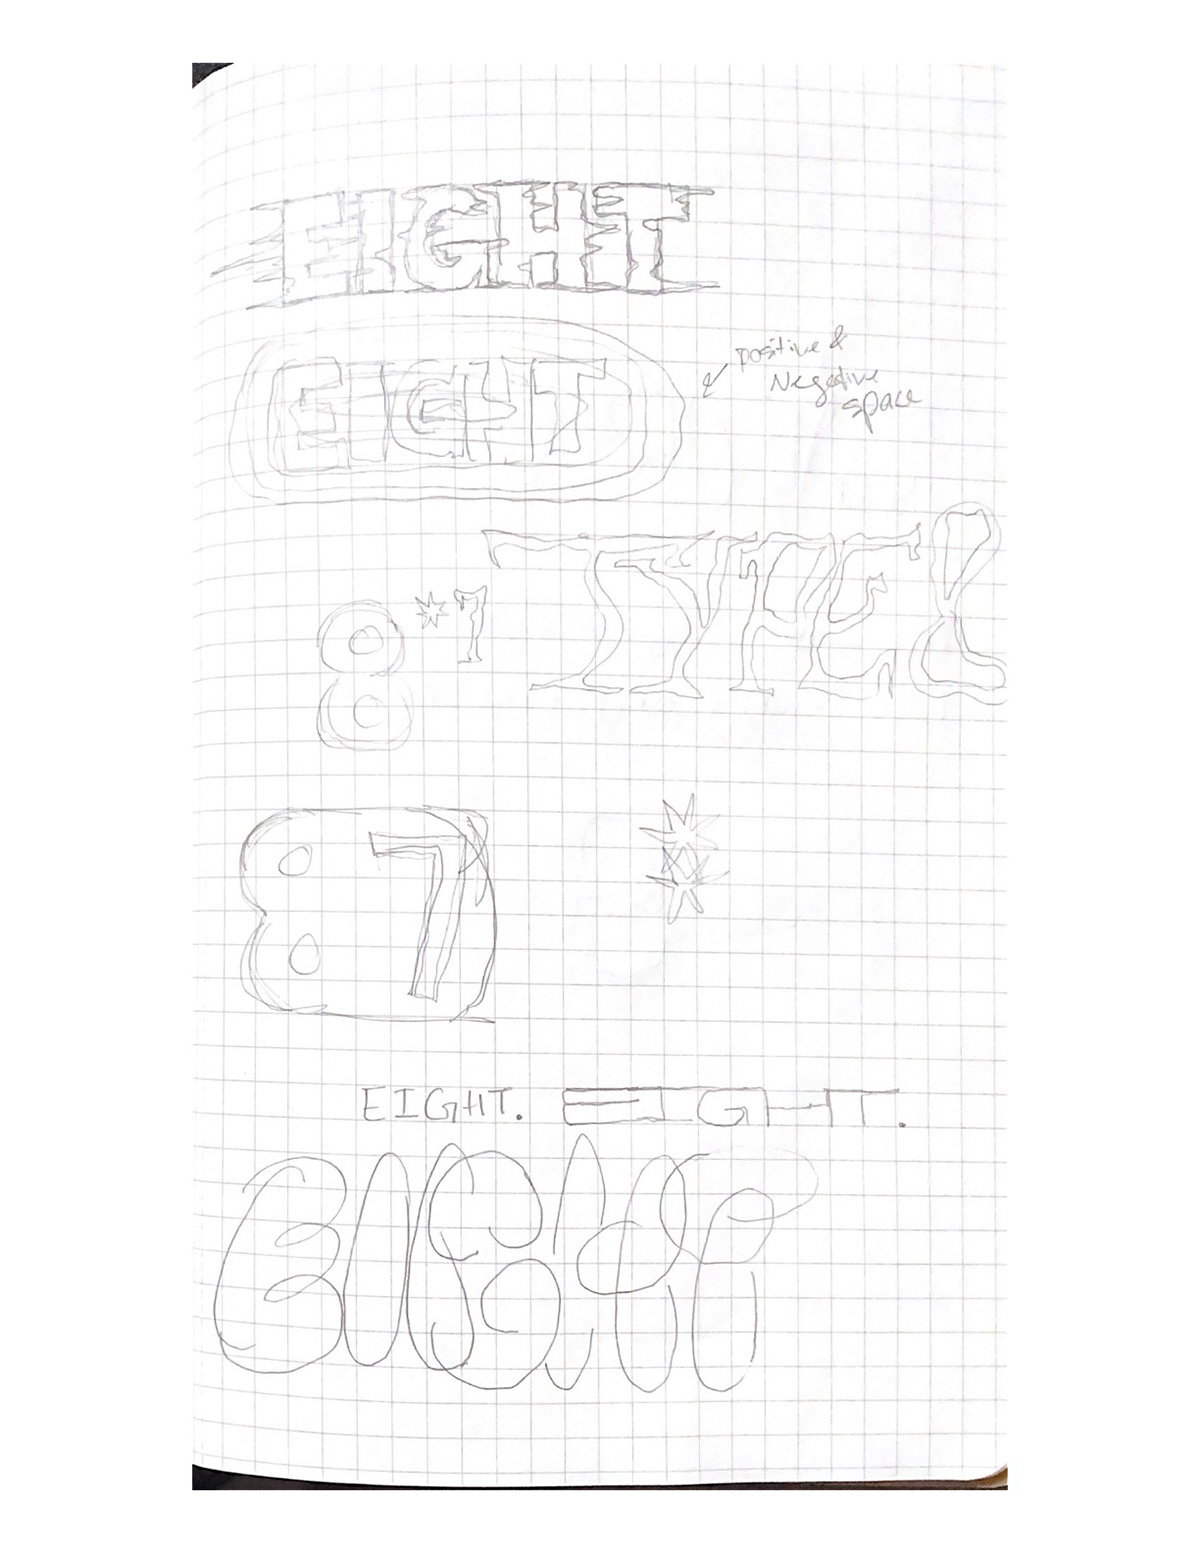 EIGHT
EIGHT
positive &
Negative
space
TYPE!
8*7
87
*
EIGHT. EIGHT.
EIGHT